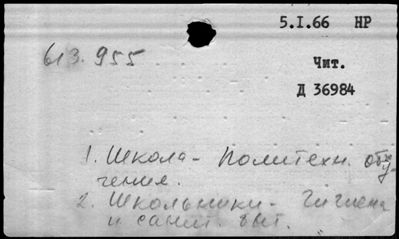 5.I.66 НР
613.955
Чит.
Д 36984
1. Школа - Политехн. обу-
чения.
2. Школьники - Гигиена
и санит.